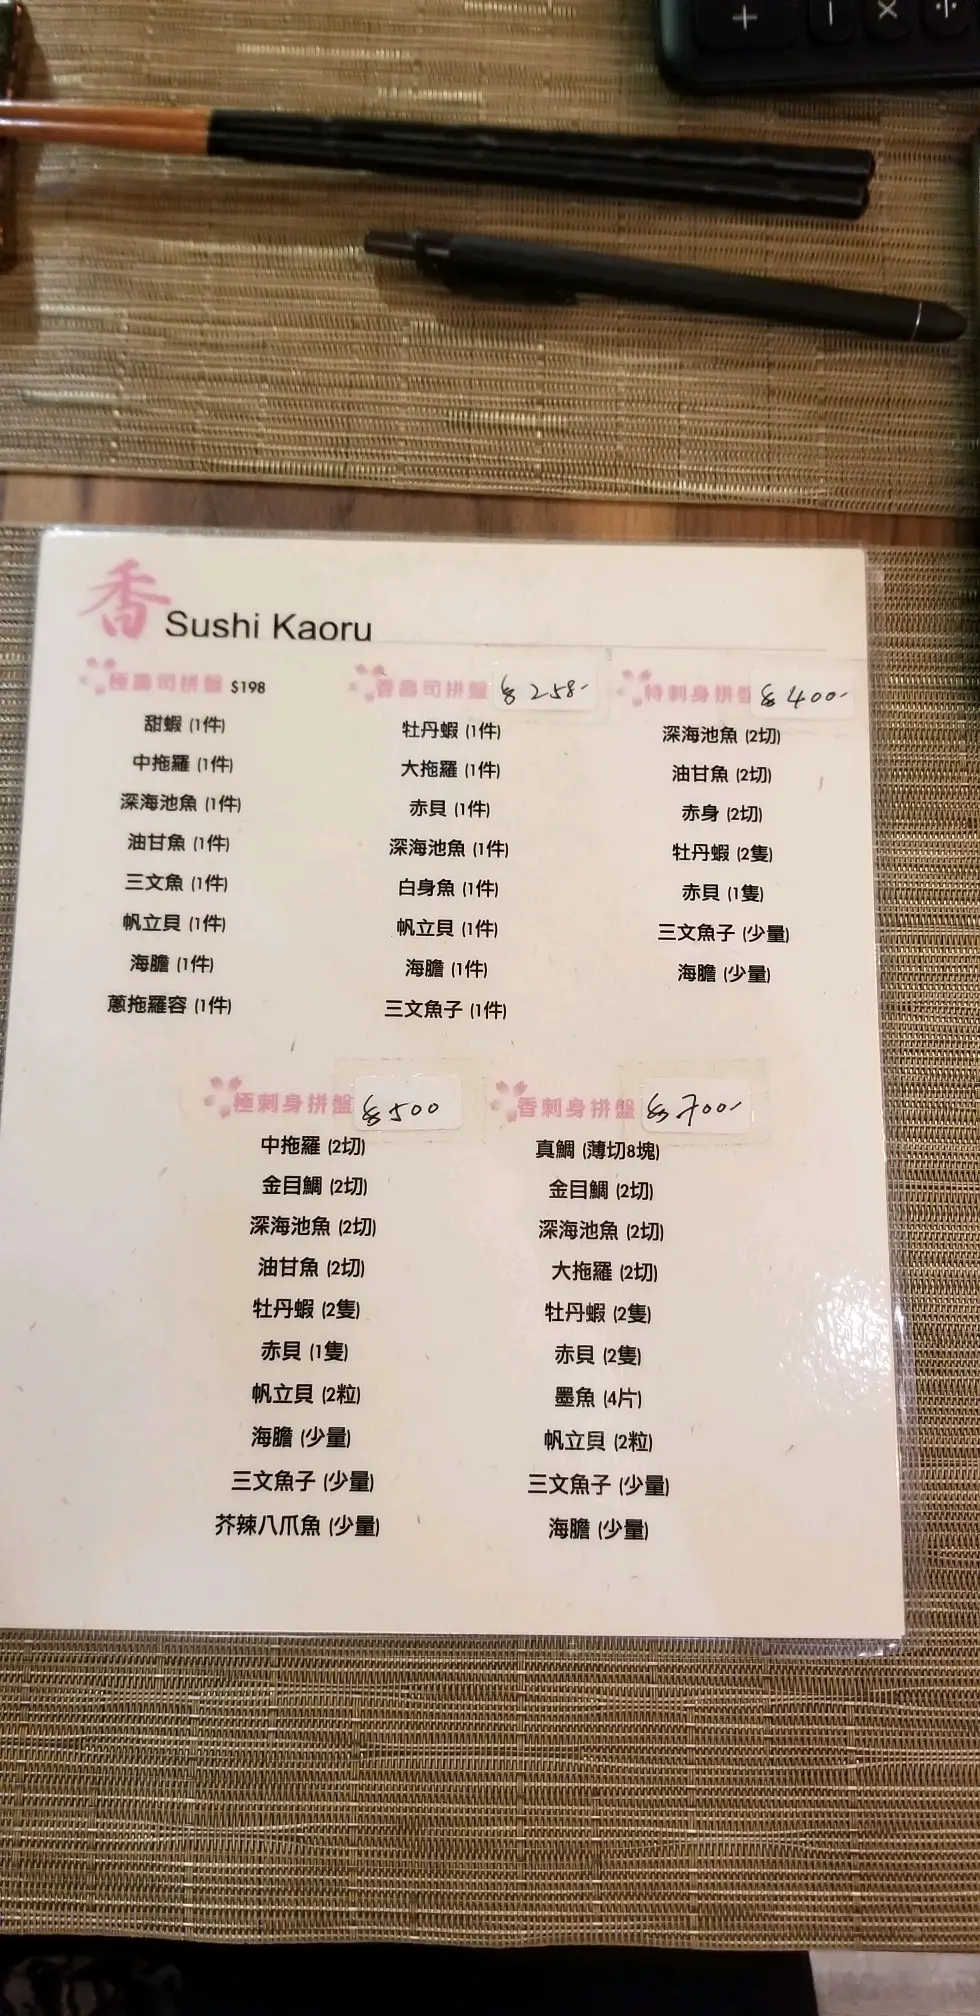 + − × ÷
香 Sushi Kaoru
極壽司拼盤 $198
甜蝦 (1件)
中拖羅 (1件)
深海池魚 (1件)
油甘魚 (1件)
三文魚 (1件)
帆立貝 (1件)
海膽 (1件)
蔥拖羅容 (1件)
香壽司拼盤 $258-
牡丹蝦 (1件)
大拖羅 (1件)
赤貝 (1件)
深海池魚 (1件)
白身魚 (1件)
帆立貝 (1件)
海膽 (1件)
三文魚子 (1件)
特刺身拼盤 $400-
深海池魚 (2切)
油甘魚 (2切)
赤身 (2切)
牡丹蝦 (2隻)
赤貝 (1隻)
三文魚子 (少量)
海膽 (少量)
極刺身拼盤 $500
中拖羅 (2切)
金目鯛 (2切)
深海池魚 (2切)
油甘魚 (2切)
牡丹蝦 (2隻)
赤貝 (1隻)
帆立貝 (2粒)
海膽 (少量)
三文魚子 (少量)
芥辣八爪魚 (少量)
香刺身拼盤 $700-
真鯛 (薄切8塊)
金目鯛 (2切)
深海池魚 (2切)
大拖羅 (2切)
牡丹蝦 (2隻)
赤貝 (2隻)
墨魚 (4片)
帆立貝 (2粒)
三文魚子 (少量)
海膽 (少量)